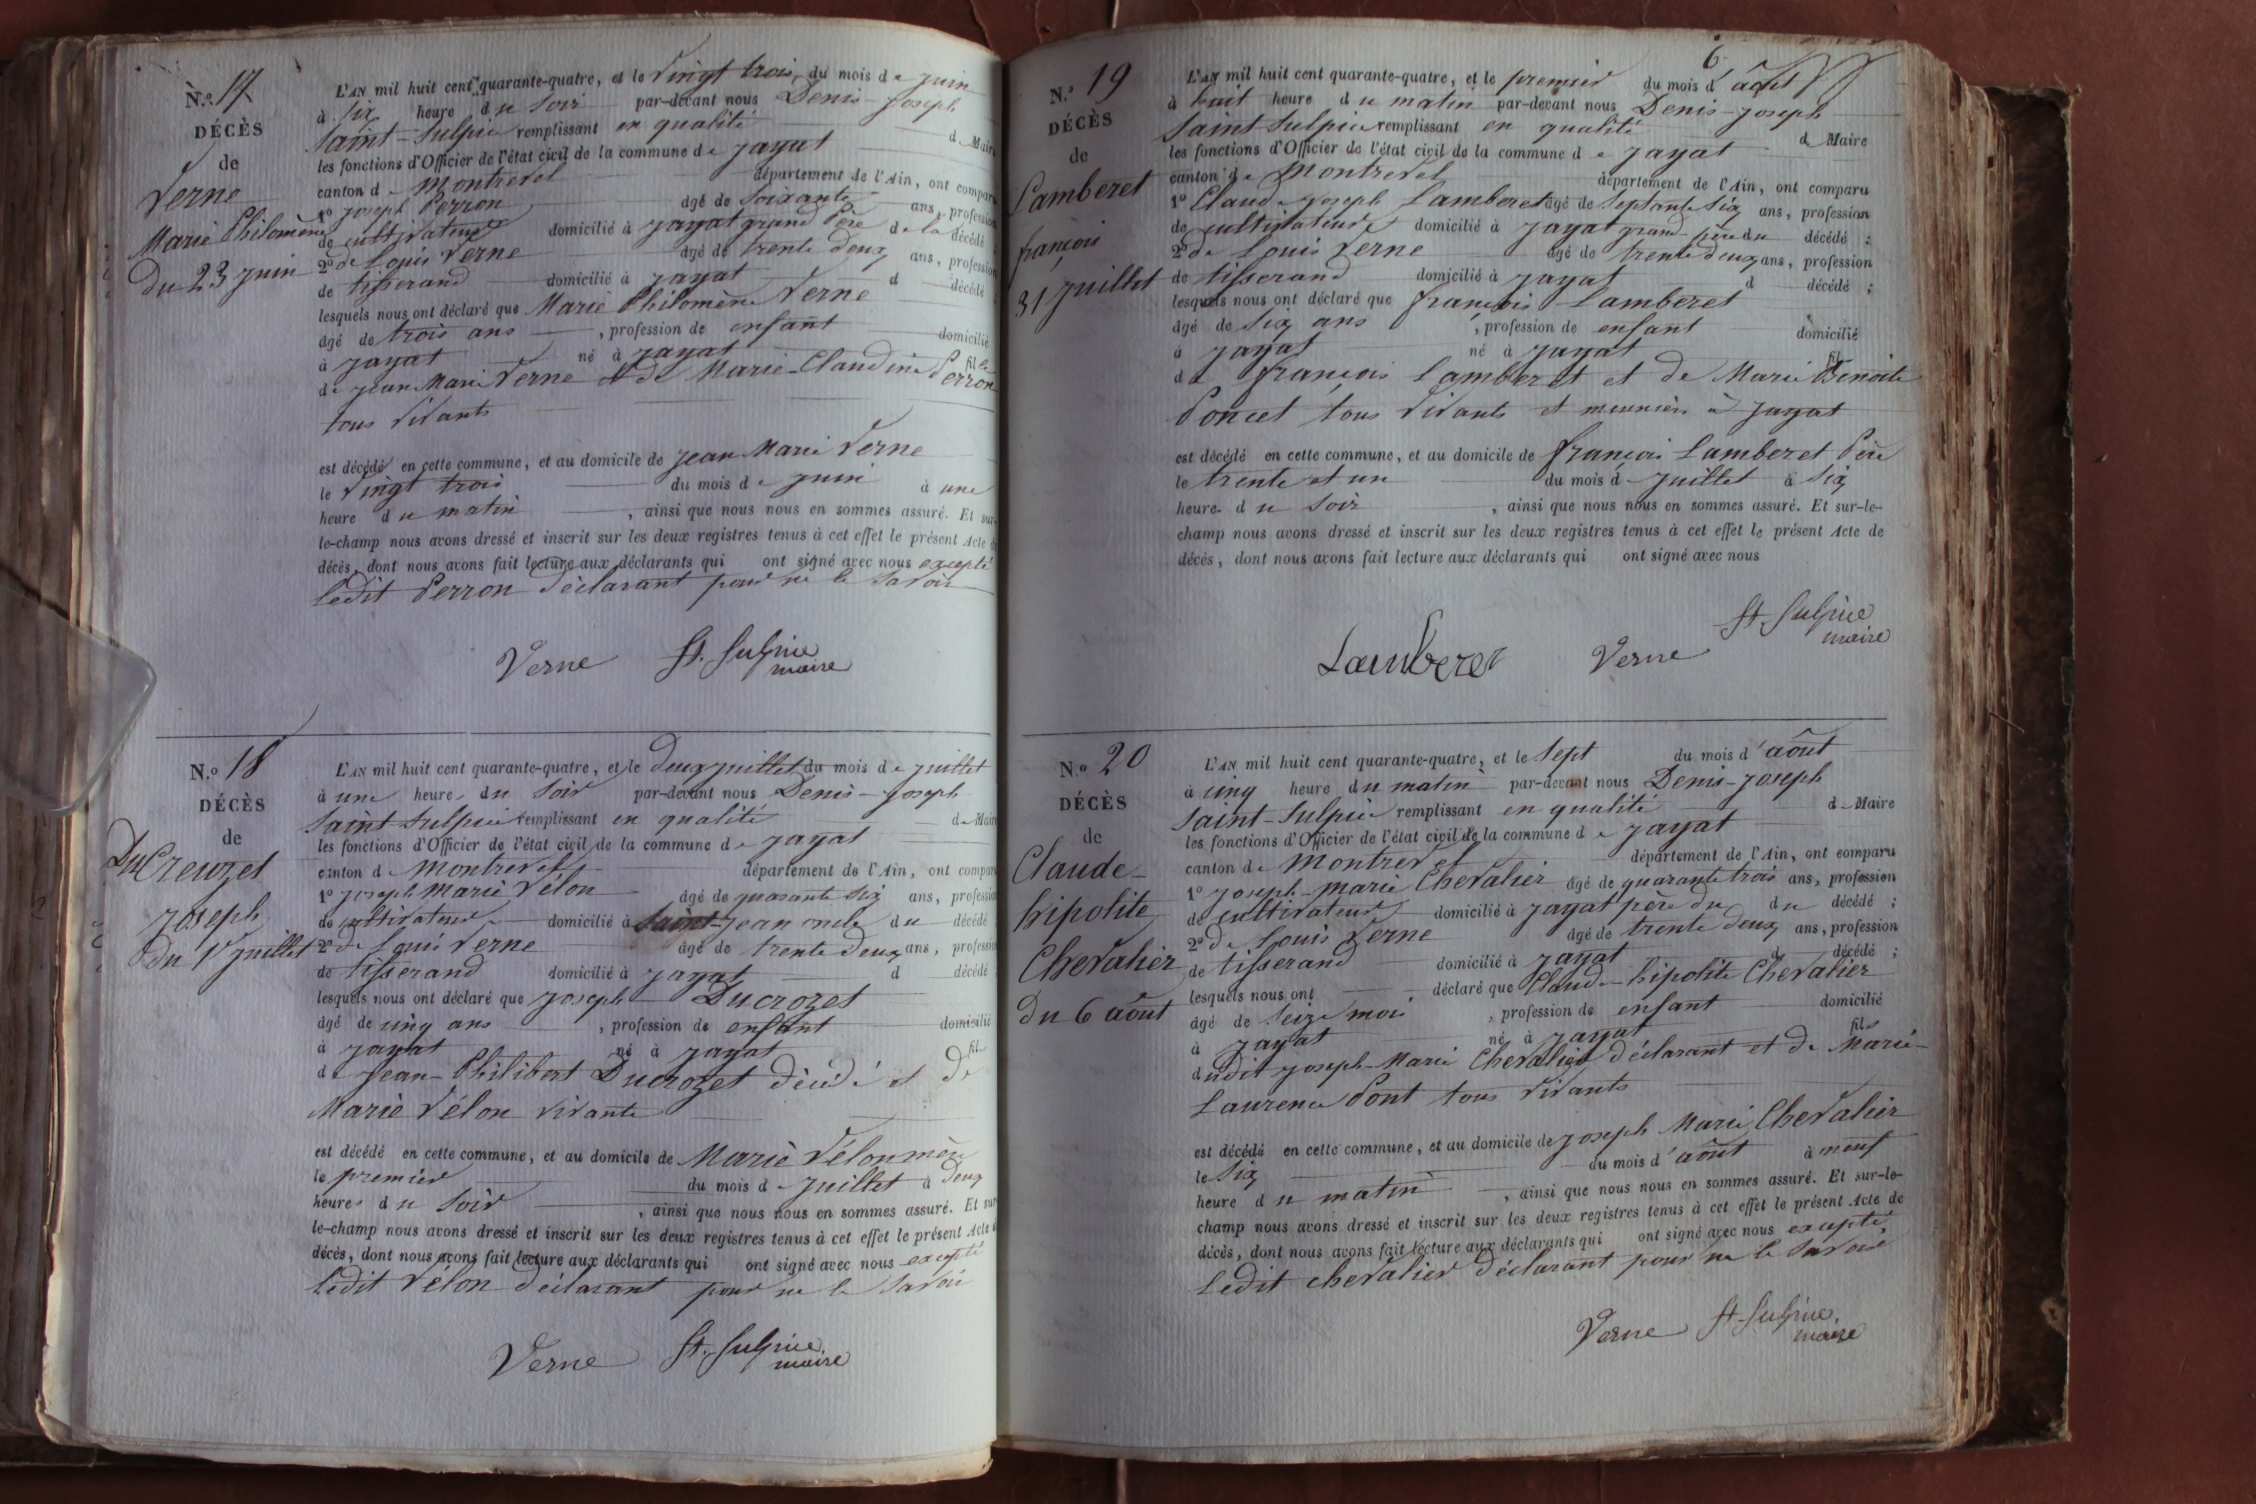 N.o 17
DÉCÈS
de
Verne
Marie Philomène
Du 23 juin
L'AN mil huit cent quarante-quatre, et le Vingt trois du mois de juin
à six heure du soir par-devant nous Denis-Joseph
Saint-Sulpice remplissant en qualité de Maire
les fonctions d'Officier de l'état civil de la commune de jayat
canton de Montrevel département de l'Ain, ont comparu
1o joseph Perron âgé de soixante ans, profession
de cultivateur domicilié à jayat grand Père de la décédé ;
2o de Louis Verne âgé de trente deux ans, profession
de tisserand domicilié à jayat d décédé ;
lesquels nous ont déclaré que Marie Philomène Verne
âgé de trois ans , profession de enfant domicilié
à jayat né à jayat fille
de jean Marie Verne et de Marie-Claudine Perron
tous vivants
est décédé en cette commune, et au domicile de jean Marie Verne
le vingt trois du mois de juin à une
heure du matin , ainsi que nous nous en sommes assuré. Et sur-
le-champ nous avons dressé et inscrit sur les deux registres tenus à cet effet le présent Acte de
décès, dont nous avons fait lecture aux déclarants qui ont signé avec nous excepté
ledit Perron déclarant pour ne le savoir
Verne St. Sulpice
maire
N.o 18
DÉCÈS
de
DuCreuzet
joseph
Du 1r juillet
L'AN mil huit cent quarante-quatre, et le deux juillet du mois de juillet
à une heure du soir par-devant nous Denis-Joseph
Saint Sulpice remplissant en qualité de Maire
les fonctions d'Officier de l'état civil de la commune de jayat
canton de Montrevel département de l'Ain, ont comparu
1o joseph Marie Vélon âgé de quarante six ans, profession
de cultivateur domicilié à Saint-jean oncle du décédé
2o de Louis Verne âgé de trente deux ans, profession
de tisserand domicilié à jayat d décédé
lesquels nous ont déclaré que joseph Ducrozet
âgé de cinq ans , profession de enfant domicilié
à jayat né à jayat fils
de jean-Philibert Ducrozet décédé et de
Marie Vélon vivante
est décédé en cette commune, et au domicile de Marie Vélon mère
le premier du mois de juillet à deux
heures du soir , ainsi que nous nous en sommes assuré. Et sur
le-champ nous avons dressé et inscrit sur les deux registres tenus à cet effet le présent Acte de
décès, dont nous avons fait lecture aux déclarants qui ont signé avec nous excepté
ledit Vélon déclarant pour ne le savoir
Verne St. Sulpice
maire
6
N.o 19
DÉCÈS
de
Lamberet
françois
31 juillet
L'AN mil huit cent quarante-quatre, et le premier du mois d'août
à huit heure du matin par-devant nous Denis-Joseph
Saint Sulpice remplissant en qualité de Maire
les fonctions d'Officier de l'état civil de la commune de jayat
canton de Montrevel département de l'Ain, ont comparu
1o Claude joseph Lamberet âgé de septante six ans, profession
de cultivateur domicilié à jayat grand-père du décédé ;
2o de Louis Verne âgé de trente deux ans, profession
de tisserand domicilié à jayat d décédé ;
lesquels nous ont déclaré que françois Lamberet
âgé de six ans , profession de enfant domicilié
à jayat né à jayat fils
de françois Lamberet et de Marie Benoite
Poncet tous vivants et meuniers à jayat
est décédé en cette commune, et au domicile de françois Lamberet Père
le trente et un du mois de juillet à six
heure du soir , ainsi que nous nous en sommes assuré. Et sur-le-
champ nous avons dressé et inscrit sur les deux registres tenus à cet effet le présent Acte de
décès, dont nous avons fait lecture aux déclarants qui ont signé avec nous
Lamberet Verne St. Sulpice
maire
N.o 20
DÉCÈS
de
Claude-
hipolite
Chevalier
du 6 août
L'AN mil huit cent quarante-quatre, et le sept du mois d'août
à cinq heure du matin par-devant nous Denis-Joseph
Saint-Sulpice remplissant en qualité de Maire
les fonctions d'Officier de l'état civil de la commune de jayat
canton de Montrevel département de l'Ain, ont comparu
1o joseph-marie Chevalier âgé de quarante trois ans, profession
de cultivateur domicilié à jayat père du du décédé ;
2o de Louis Verne âgé de trente deux ans, profession
de tisserand domicilié à jayat d décédé ;
lesquels nous ont déclaré que Claude-hipolite Chevalier
âgé de seize mois , profession de enfant domicilié
à jayat né à jayat fils
dudit joseph-Marie Chevalier déclarant et de Marie-
Laurence Pont tous vivants
est décédé en cette commune, et au domicile de joseph Marie Chevalier
le six du mois d'août à neuf
heure du matin , ainsi que nous nous en sommes assuré. Et sur-le-
champ nous avons dressé et inscrit sur les deux registres tenus à cet effet le présent Acte de
décès, dont nous avons fait lecture aux déclarants qui ont signé avec nous excepté
Ledit chevalier déclarant pour ne le savoir
Verne St. Sulpice
maire